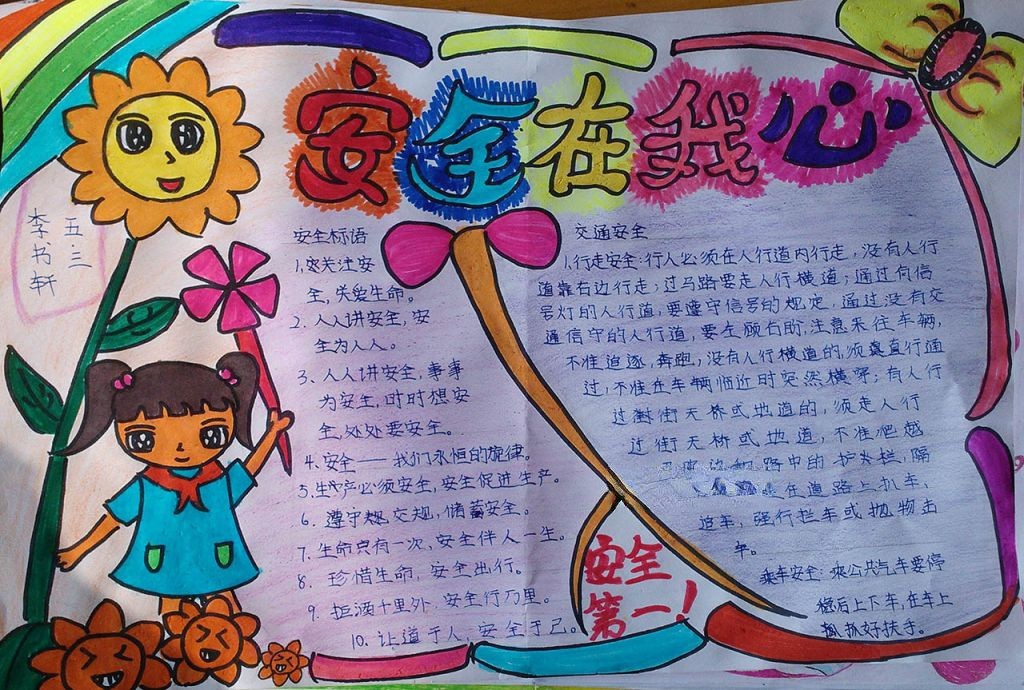 安全在我心
五·三
李书轩
安全标语
1、突关注安
全,关爱生命。
2、人人讲安全,安
全为人人。
3、人人讲安全,事事
为安全,时时想安
全,处处要安全。
4、安全——我们永恒的旋律。
5、生产必须安全,安全促进生产。
6、遵守规交规,储蓄安全。
7、生命只有一次,安全伴人一生。
8、珍惜生命,安全出行。
9、拒酒千里外,安全行万里。
10、让道于人,安全于己。
安全
第一!
交通安全
1、行走安全:行人必须在人行道内行走,没有人行
道靠右边行走;过马路要走人行横道;通过有信
号灯的人行道,要遵守信号的规定,通过没有交
通信守的人行道,要左顾右盼,注意来往车辆,
不准追逐,奔跑;没有人行横道的,须直行通
过,不准在车辆临近时突然横穿;有人行
过街天桥或地道的,须走人行
过街天桥或地道,不准爬越
路中的护栏,隔
在道路上扒车,
追车,强行拦车或抛物击
车。
乘车安全:乘公共气车要停
稳后上下车,在车上
抓好扶手。